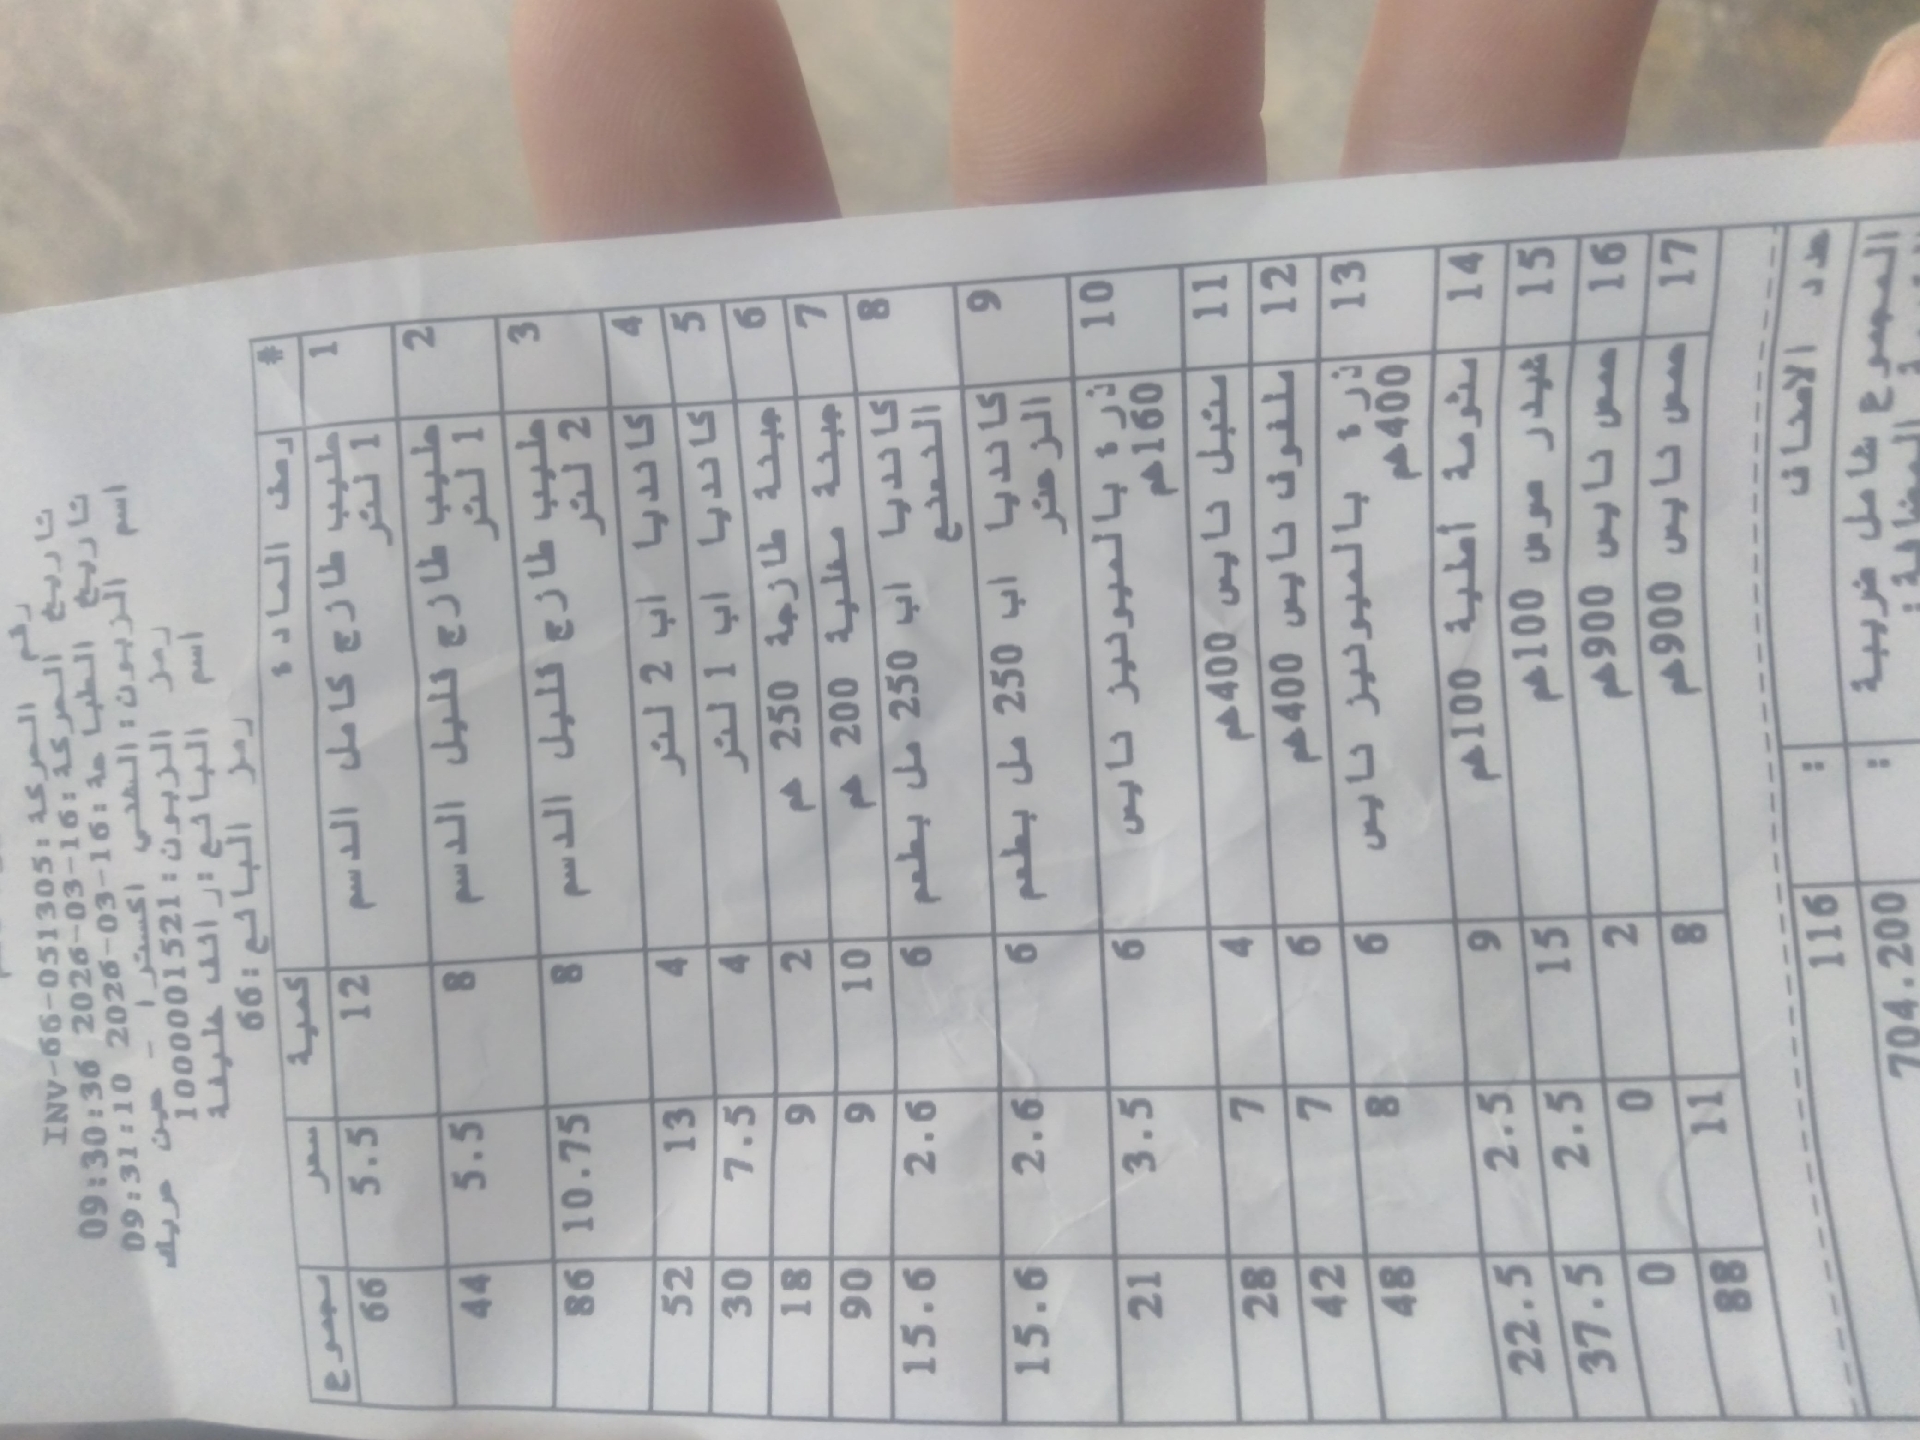 رقم الحركة: INV-66-051305
تاريخ الحركة: 16-03-2026 09:30:36
تاريخ الطباعة: 16-03-2026 09:31:10
اسم الزبون: القدس اكسترا -
رمز الزبون: 1000001521
اسم البائع: رائف خليفة
رمز البائع: 66
# وصف المادة كمية سعر مجموع
1 حليب طازج كامل الدسم 1 لتر 12 5.5 66
2 حليب طازج قليل الدسم 1 لتر 8 5.5 44
3 حليب طازج قليل الدسم 2 لتر 8 10.75 86
4 كانديا اب 2 لتر 4 13 52
5 كانديا اب 1 لتر 4 7.5 30
6 جبنة طازجة 250 غم 2 9 18
7 جبنة مغلية 200 غم 10 9 90
8 كانديا اب 250 مل بطعم النعنع 6 2.6 15.6
9 كانديا اب 250 مل بطعم الزعتر 6 2.6 15.6
10 ذرة بالميونيز نايس 160غم 6 3.5 21
11 متبل نايس 400غم 4 7 28
12 ملفوف نايس 400غم 6 7 42
13 ذرة بالميونيز نايس 400غم 6 8 48
14 مثومة أصلية 100غم 9 2.5 22.5
15 شيدر صوص 100غم 15 2.5 37.5
16 حمص نايس 900غم 2 0 0
17 حمص نايس 900غم 8 11 88
عدد الاصناف : 116
المجموع شامل ضريبة : 704.200